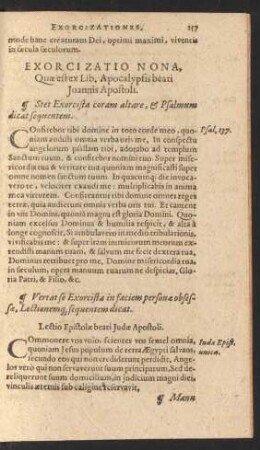 EXORCIZATIONES. 157
mode hanc creaturam Dei, optimi maximi, viventis
in sæcula sæculorum.
EXORCIZATIO NONA,
Quæ est ex Lib. Apocalypsis beati
Joannis Apostoli.
¶ Stet Exorcista coram altare, & Psalmum
dicat sequentem.
Confitebor tibi domine in toto corde meo, quo- Psal. 137.
niam audisti omnia verba oris mei, In conspectu
angelorum psallam tibi, adorabo ad templum
Sanctum tuum, & confitebor nomini tuo. Super mise-
ricordia tua & veritate tua quoniam magnificasti super
omne nomen sanctum tuum. In quacumque die invoca-
vero te, velociter exaudi me: multiplicabis in anima
mea virtutem. Confiteantur tibi domine omnes reges
terræ; quia audierunt omnia verba oris tui. Et cantent
in viis Domini, quoniã magna est gloria Domini. Quo-
niam excelsus Dominus & humilia respicit, & alta à
longe cognoscit, Si ambulavero in medio tribulationis,
vivificabis me: & super iram inimicorum meorum ex-
tendisti manum tuam, & salvum me fecit dextera tua,
Dominus retribuet pro me, Domine misericordia tua,
in sæculum, opera manuum tuarum ne despicias, Gloria
Patri, & Filio, &c.
¶ Vertat se Exorcista in faciem personæ obses-
sæ, Lectionemq; sequentem dicat.
Lectio Epistolæ beati Judæ Apostoli.
Commonere vos volo, scientes vos semel omnia, Iudæ Epist.
quoniam Jesus populum de terra Ægypti salvans, unica.
secundo eos qui non crediderunt perdidit, Ange-
los verò qui non servaverunt suum principatum, Sed de-
reliquerunt suum domicilium, in judicium magni diei,
vinculis æternis sub caligine reservavit,
¶ Mann